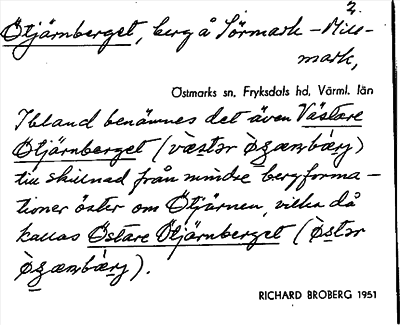 2.
Ötjärnberget, berg å Sörmark – Mill-
mark,
Östmarks sn, Fryksdals hd, Värml. län
Ibland benämnes det även Västare
Ötjärnberget (västər
till skillnad från mindre bergforma-
tioner öster om Ötjärnen, vilka då
kallas Östare Ötjärnberget (
RICHARD BROBERG 1951